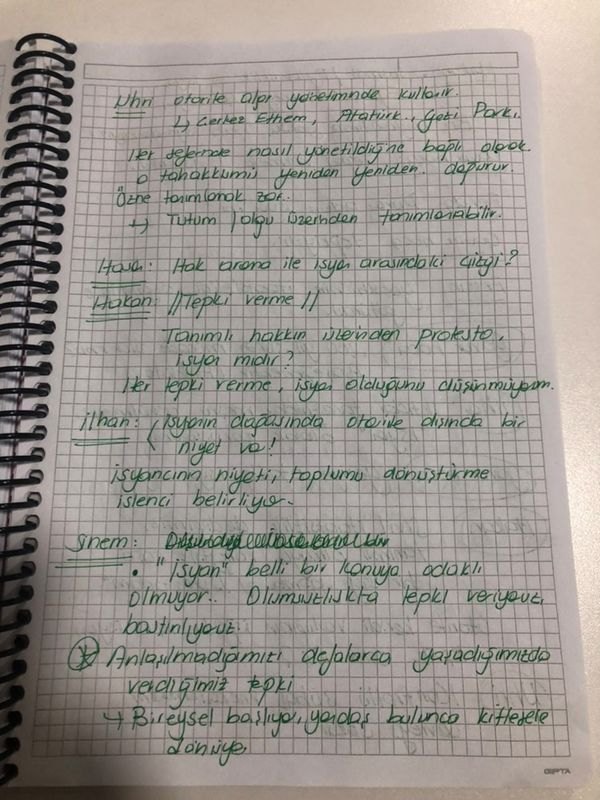 otorite algı yönetiminde kullanır.
↳ Çerkez Ethem, Atatürk, Gezi Parkı.
Her seferinde nasıl yönetildiğine bağlı olarak
o tahakkümü yeniden yeniden doğurur.
Özne tanımlamak zor.
↳ Tutum / olgu üzerinden tanımlanabilir.
Hasan: Hak arama ile isyan arasındaki çizgi?
Hakan: //Tepki verme//
Tanımlı hakkın üzerinden protesto,
isyan mıdır?
Her tepki verme, isyan olduğunu düşünmüyorum.
İlhan: İsyanın doğasında otorite dışında bir
niyet var!
isyancının niyeti, toplumu dönüştürme
istenci belirliyor.
Sinem:
• "isyan" belli bir konuya odaklı
olmuyor. Olumsuzlukta tepki veriyoruz,
bastırılıyoruz.
Anlaşılmadığımızı defalarca yaşadığımızda
verdiğimiz tepki
↳ Bireysel başlıyor, yandaş bulunca kitlesele
dönüyor.
GIPTA